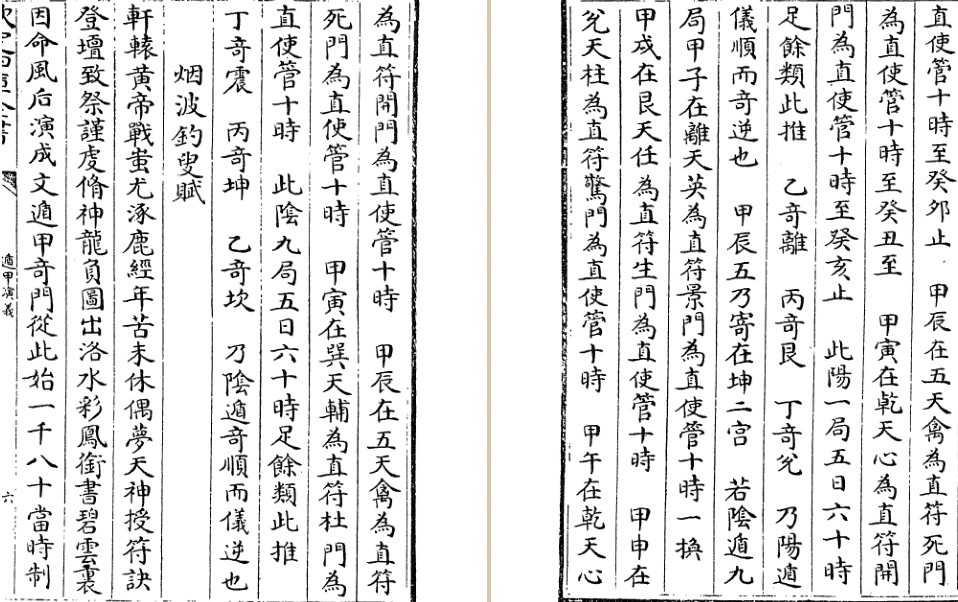 直使管十時至癸卯止 甲辰在五天禽為直符死門
為直使管十時至癸丑至 甲寅在乾天心為直符開
門為直使管十時至癸亥止 此陽一局五日六十時
足餘類此推 乙奇離 丙奇艮 丁奇兊 乃陽遁
儀順而奇逆也 甲辰五乃寄在坤二宫 若陰遁九
局甲子在離天英為直符景門為直使管十時一換
甲戍在艮天任為直符生門為直使管十時 甲申在
兊天柱為直符驚門為直使管十時 甲午在乾天心
為直符開門為直使管十時 甲辰在五天禽為直符
死門為直使管十時 甲寅在巽天輔為直符杜門為
直使管十時 此陰九局五日六十時足餘類此推
丁奇震 丙奇坤 乙奇坎 乃陰遁奇順而儀逆也
烟波釣叟賦
軒轅黄帝戰蚩尤涿鹿經年苦未休偶夢天神授符訣
登壇致祭謹虔脩神龍負圖出洛水彩鳳銜書碧雲裏
因命風后演成文遁甲奇門從此始一千八十當時制
遁甲演義
六